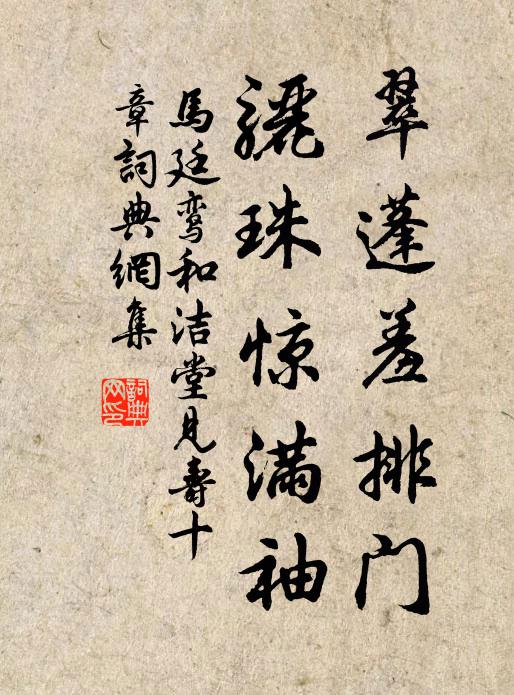 翠蓬羞排门
骊珠惊满袖
馬廷鸾和洁堂见壽十
章詞典網集
詞典网印